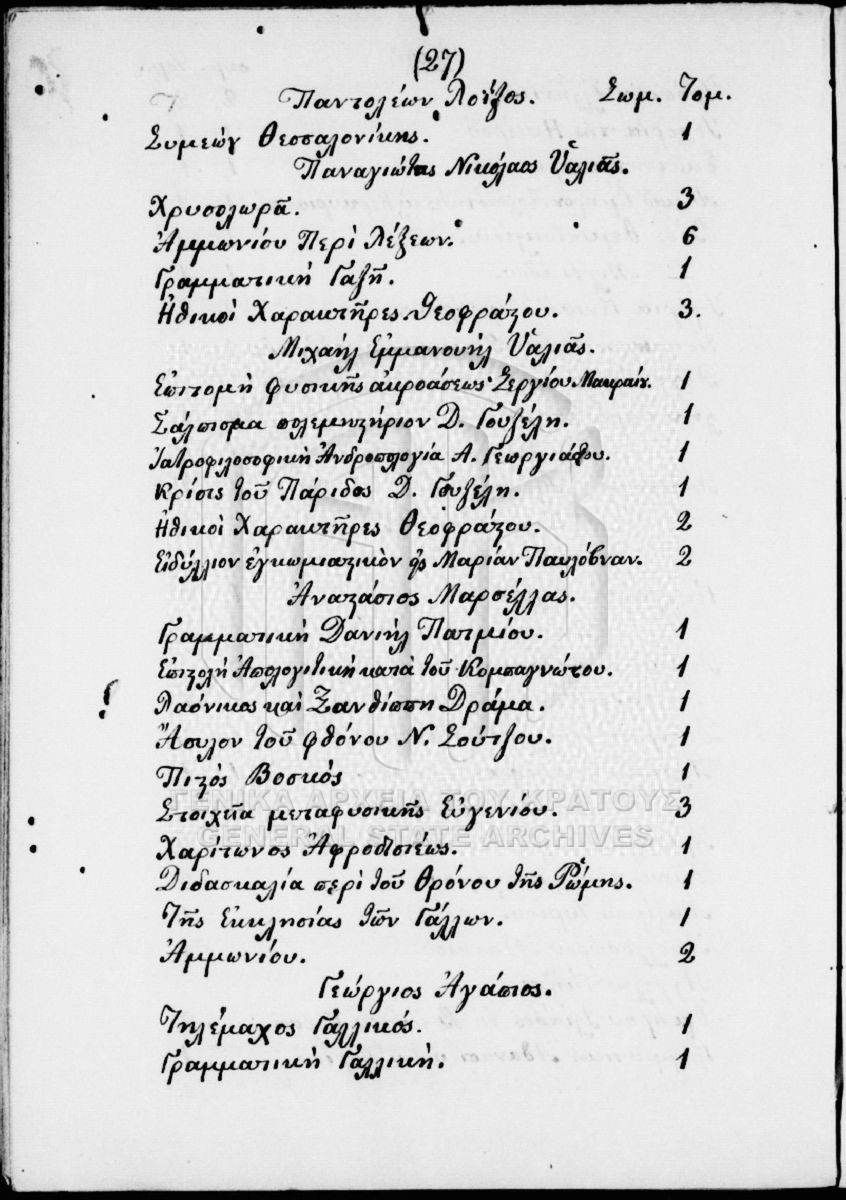 (27)
Παντολέων Λοΐζος. Σωμ. Τομ.
Συμεὼν Θεσσαλονίκης. 1
Παναγιώτης Νικόλαος Ὑαλιᾶς.
Χρυσολωρᾶ. 3
Ἀμμωνίου Περὶ Λέξεων. 6
Γραμματικὴ Γαζῆ. 1
Ἠθικοὶ Χαρακτῆρες Θεοφράστου. 3.
Μιχαὴλ Ἐμμανουὴλ Ὑαλιᾶς.
Ἐπιτομὴ φυσικῆς ἀκροάσεως Σεργίου Μακραίου. 1
Σάλπισμα πολεμιστήριον Δ. Γουζέλη. 1
Ἰατροφιλοσοφικὴ Ἀνδροπολογία Α. Γεωργιάδου. 1
Κρίσις τοῦ Πάριδος Δ. Γουζέλη. 1
Ἠθικοὶ Χαρακτῆρες Θεοφράστου. 2
Εἰδύλλιον ἐγκωμιαστικὸν εἰς Μαρίαν Παυλόβναν. 2
Ἀναστάσιος Μαρσέλλας.
Γραμματικὴ Δανιὴλ Πατμίου. 1
Ἐπιστολὴ Ἀπολογιτικὴ κατὰ τοῦ Κομπαγνώτου. 1
Λαόνικος καὶ Ξανθίππη Δράμα. 1
Ἄσυλον τοῦ φθόνου Ν. Σούτζου. 1
Πιστὸς Βοσκός 1
Στοιχῆα μεταφυσικῆς Εὐγενίου. 3
ΓΕΝΙΚΑ ΑΡΧΕΙΑ ΤΟΥ ΚΡΑΤΟΥΣ
GENERAL STATE ARCHIVES
Χαρίτωνος Ἀφροδισιέως. 1
Διδασκαλία περὶ τοῦ Θρόνου τῆς Ῥώμης. 1
Τῆς Ἐκκλησίας τῶν Γάλλων. 1
Ἀμμωνίου. 2
Γεώργιος Ἀγάπιος.
Τηλέμαχος Γαλλικός. 1
Γραμματικὴ Γαλλική. 1